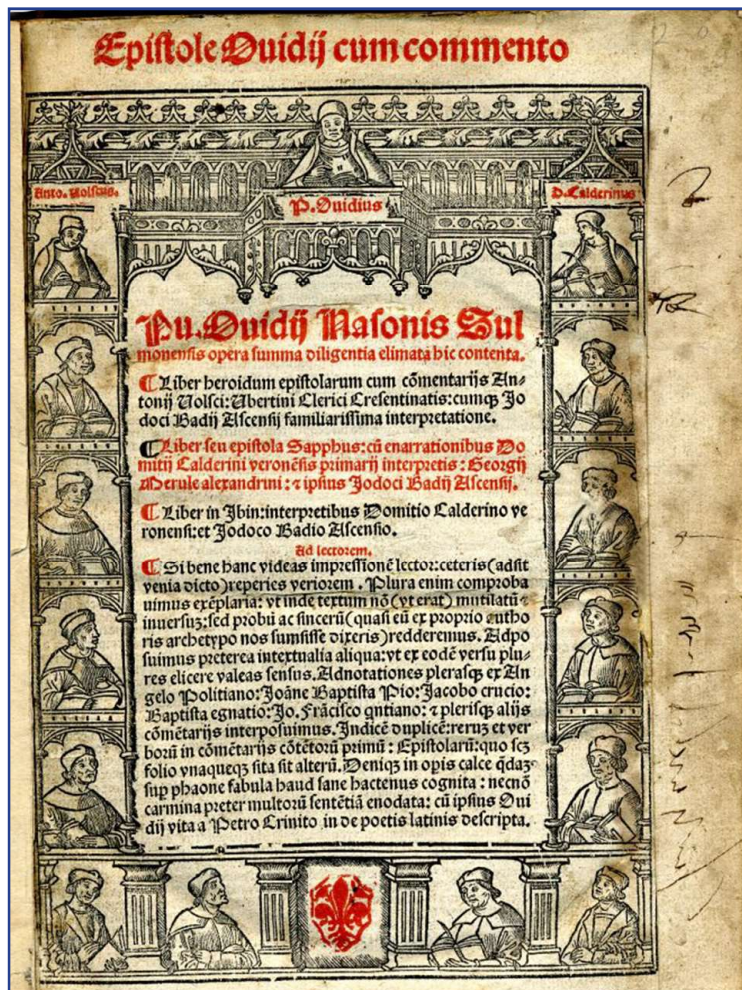 Epistole Ouidij cum commento
Anto. Uolscus.
P. Ouidius
D. Calderinus
Pu. Ouidij Nasonis Sul
monensis opera summa diligentia elimata hic contenta.
¶ Liber heroidum epistolarum cum cōmentarijs An-
tonij Uolsci: Ubertini Clerici Cresentinatis: cumqꝫ Jo
doci Badij Ascensij familiarissima interpretatione.
¶ Liber seu epistola Sapphus: cū enarrationibus Do
mitij Calderini veronēsis primarij interpretis: Georgij
Merule alexandrini: ⁊ ipsius Jodoci Badij Ascensij.
¶ Liber in Ibin: interpretibus Domitio Calderino ve
ronensi: et Jodoco Badio Ascensio.
Ad lectorem.
¶ Si bene hanc videas impressionē lector: ceteris (adsit
venia dicto) reperies veriorem. Plura enim comproba
uimus exēplaria: vt inde textum nō (vt erat) mutilatū ⁊
inuersuꝫ: sed probū ac sincerū (quasi eū ex proprio autho
ris archetypo nos sumsisse dixeris) redderemus. Adpo
suimus preterea intextualia aliqua: vt ex eodē versu plu-
res elicere valeas sensus. Adnotationes plerasqꝫ ex An
gelo Politiano: Joāne Baptista Pio: Jacobo crucio:
Baptista egnatio: Jo. Frācisco qntiano: ⁊ plerisqꝫ alijs
cōmētarijs interposuimus. Indicē duplicē: reruꝫ et ver
borū in cōmētarijs cōtētorū primū: Epistolarū: quo scꝫ
folio vnaqueqꝫ sita sit alterū. Deniqꝫ in opis calce qdaꝫ
sup phaone fabula haud sane hactenus cognita: necnō
carmina preter multorū sentētiā enodata: cū ipsius Oui
dij vita a Petro Crinito in de poetis latinis descripta.